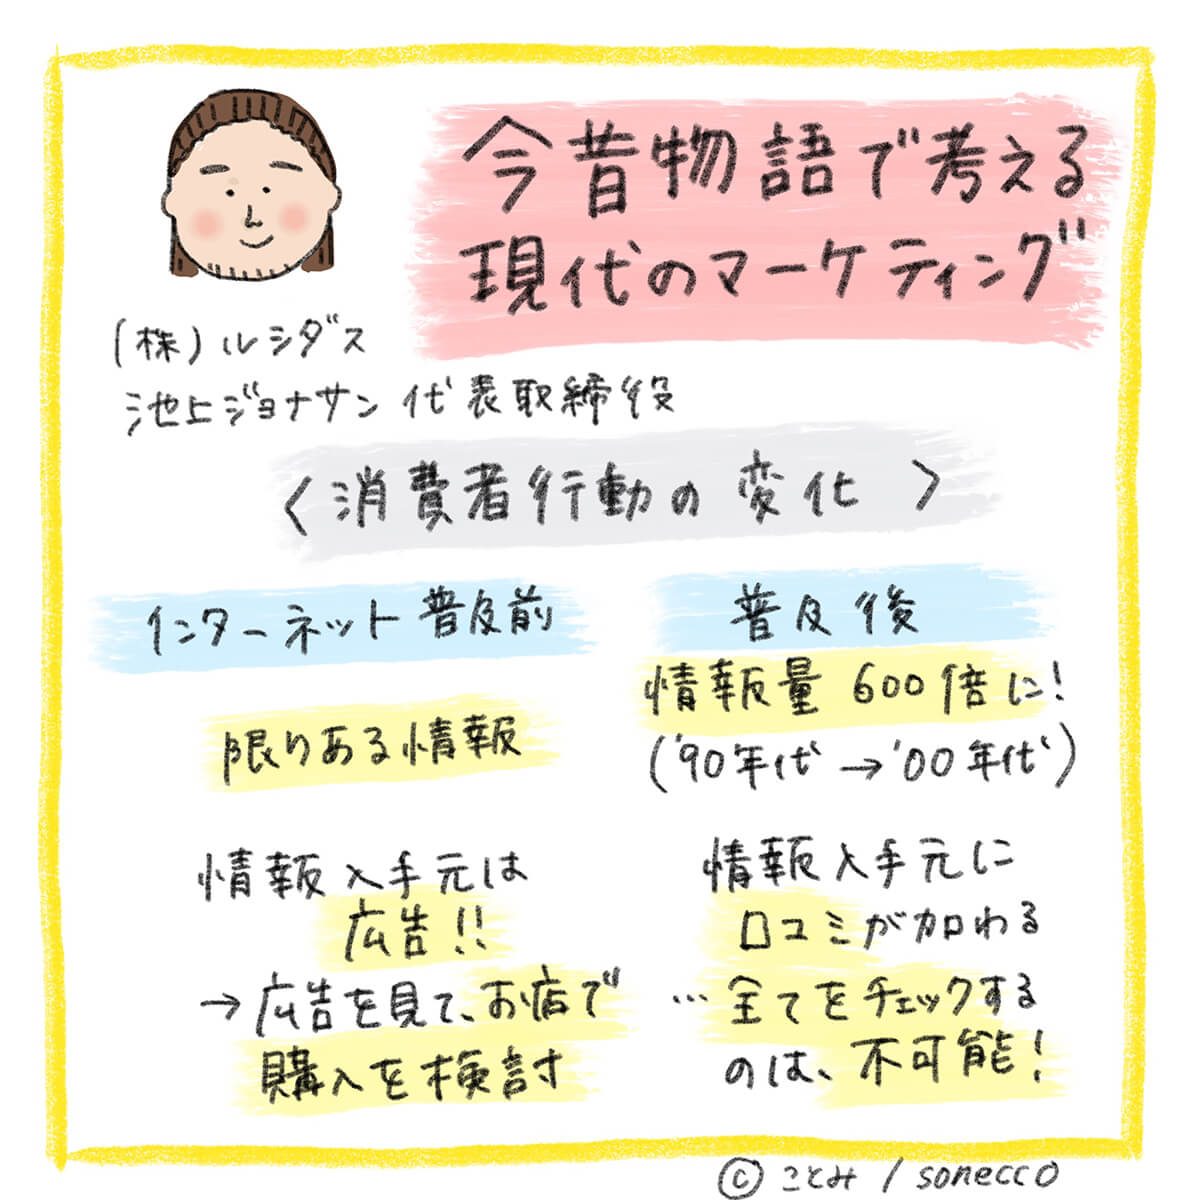 今昔物語で考える
現代のマーケティング
(株)ルシダス
池上ジョナサン 代表取締役
〈消費者行動の変化〉
インターネット普及前
限りある情報
情報入手元は
広告!!
→広告を見て、お店で
購入を検討
普及後
情報量 600倍に!
('90年代→'00年代)
情報入手元に
口コミが加わる
…全てをチェックする
のは、不可能!
© ことみ / sonecco